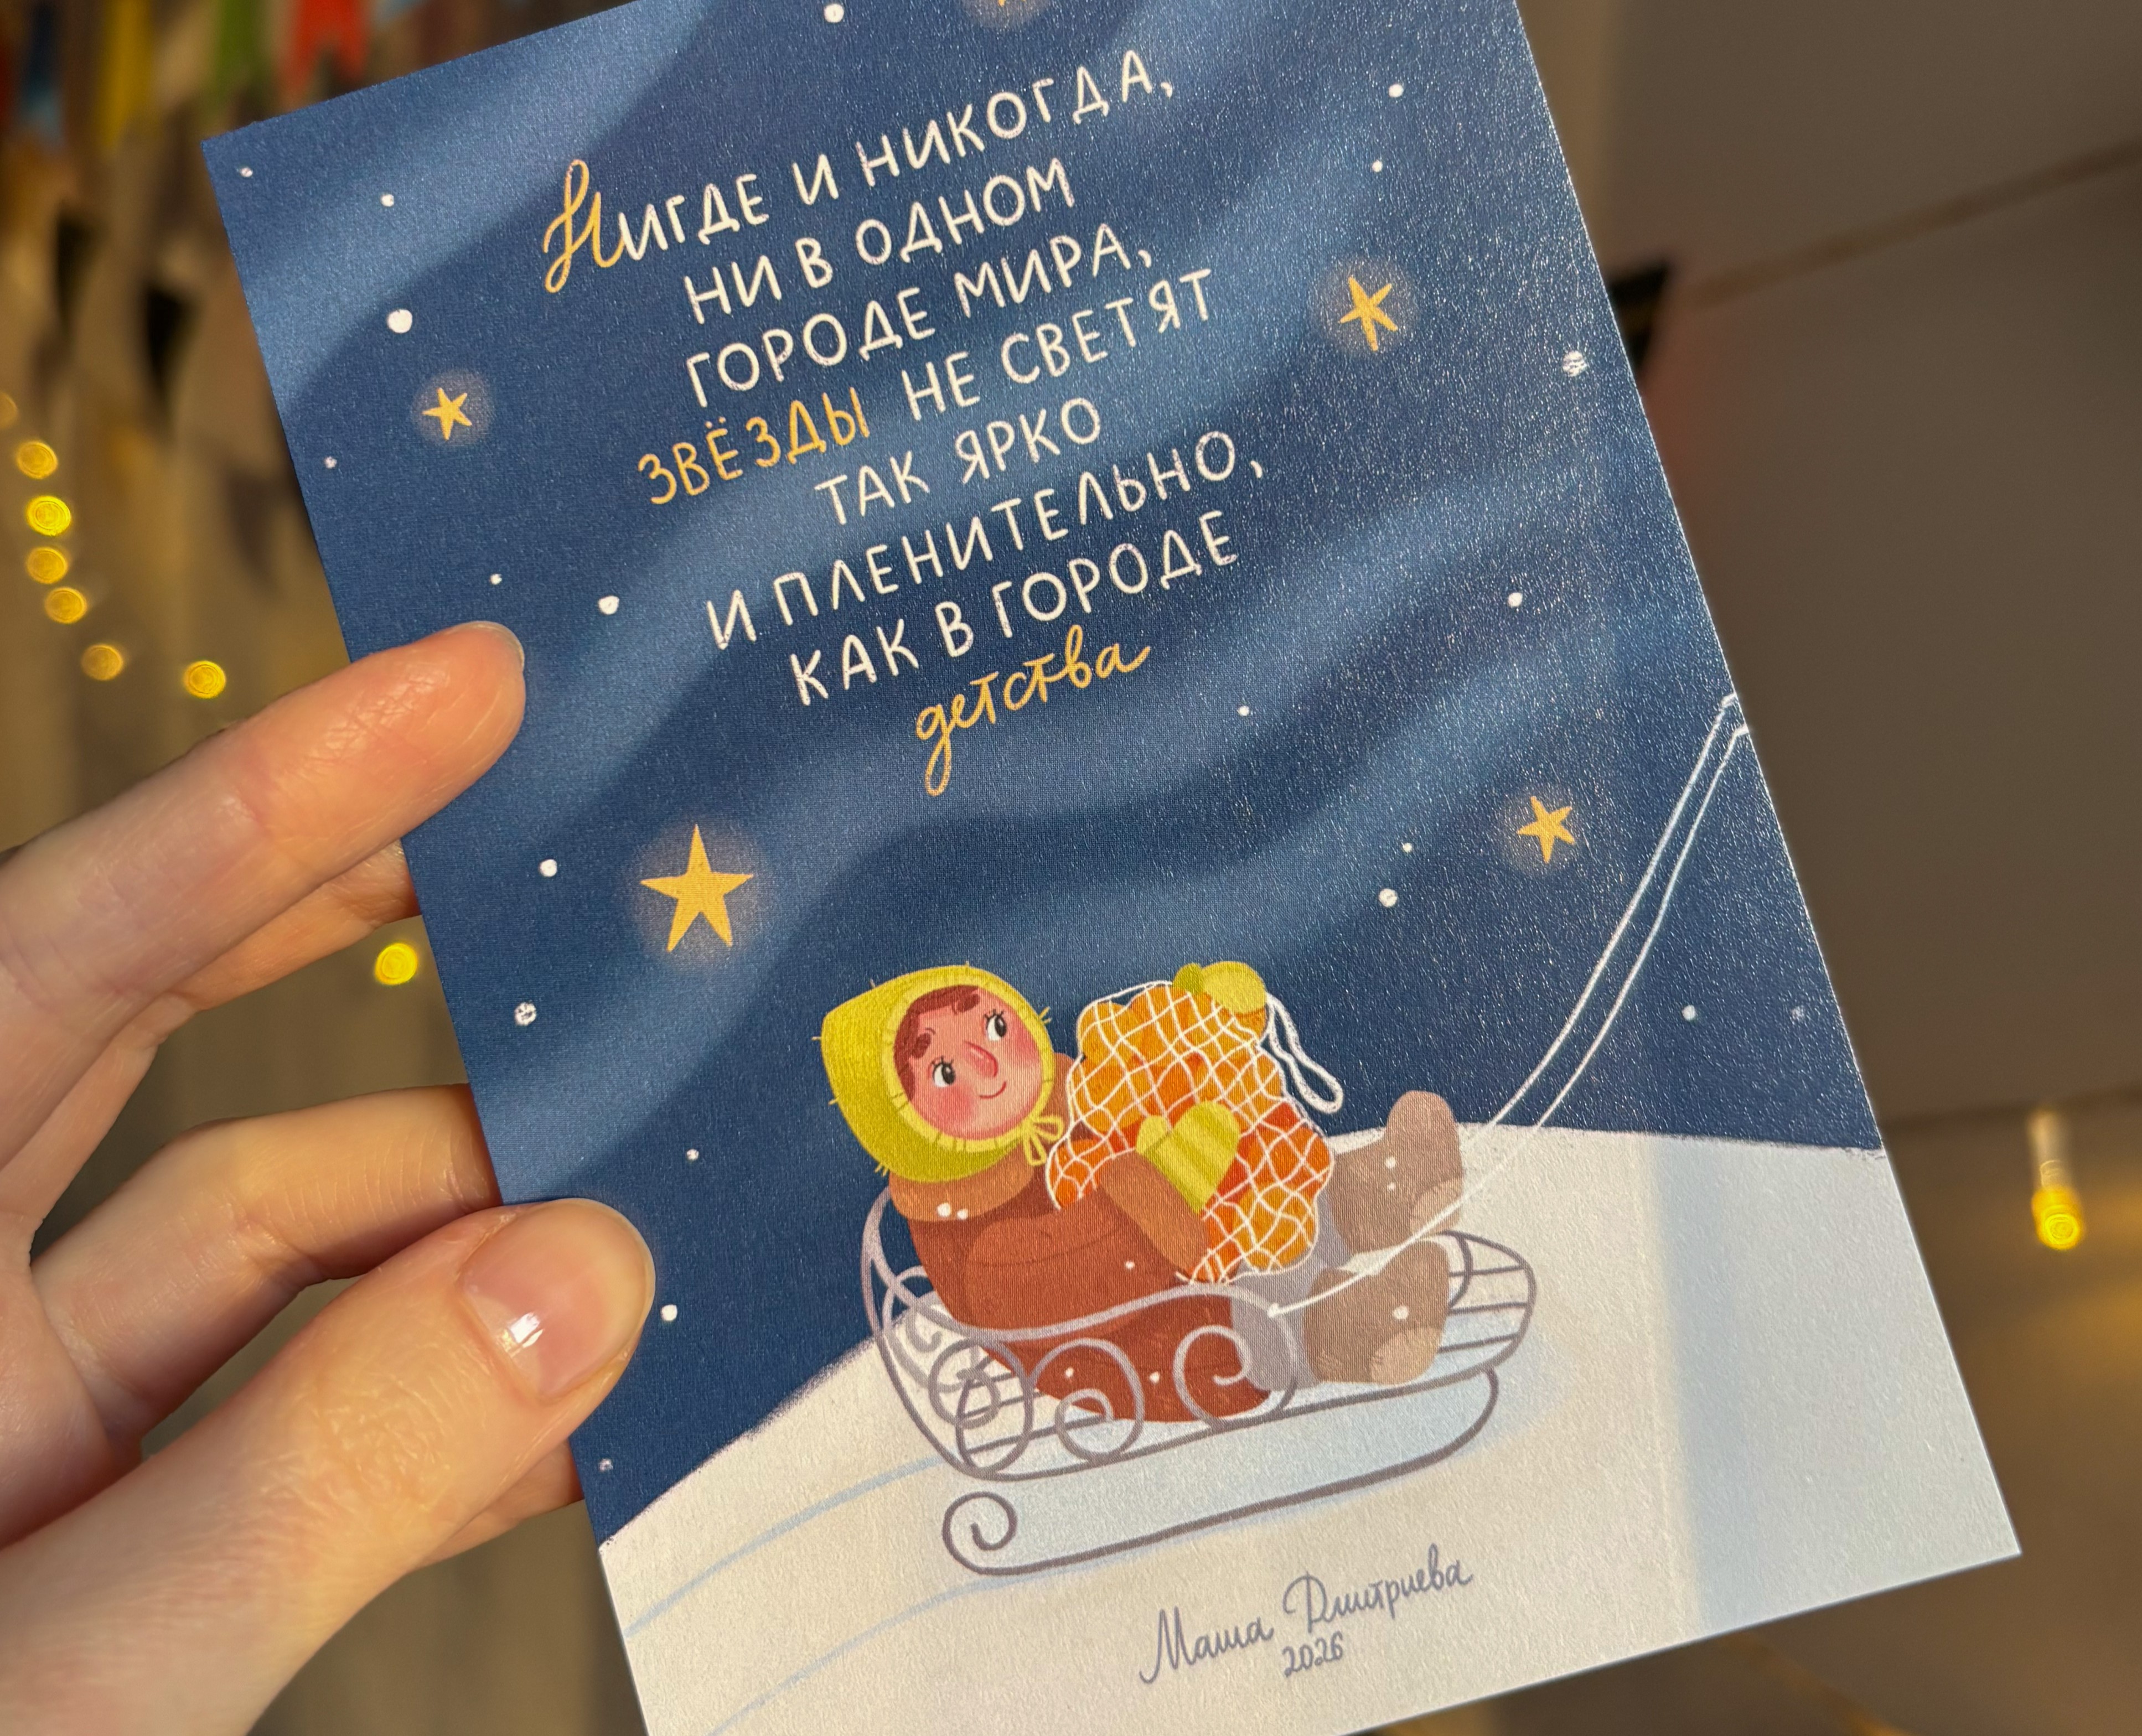 Нигде и никогда,
ни в одном
городе мира,
звёзды не светят
так ярко
и пленительно,
как в городе
детства
Маша Дмитриева
2026